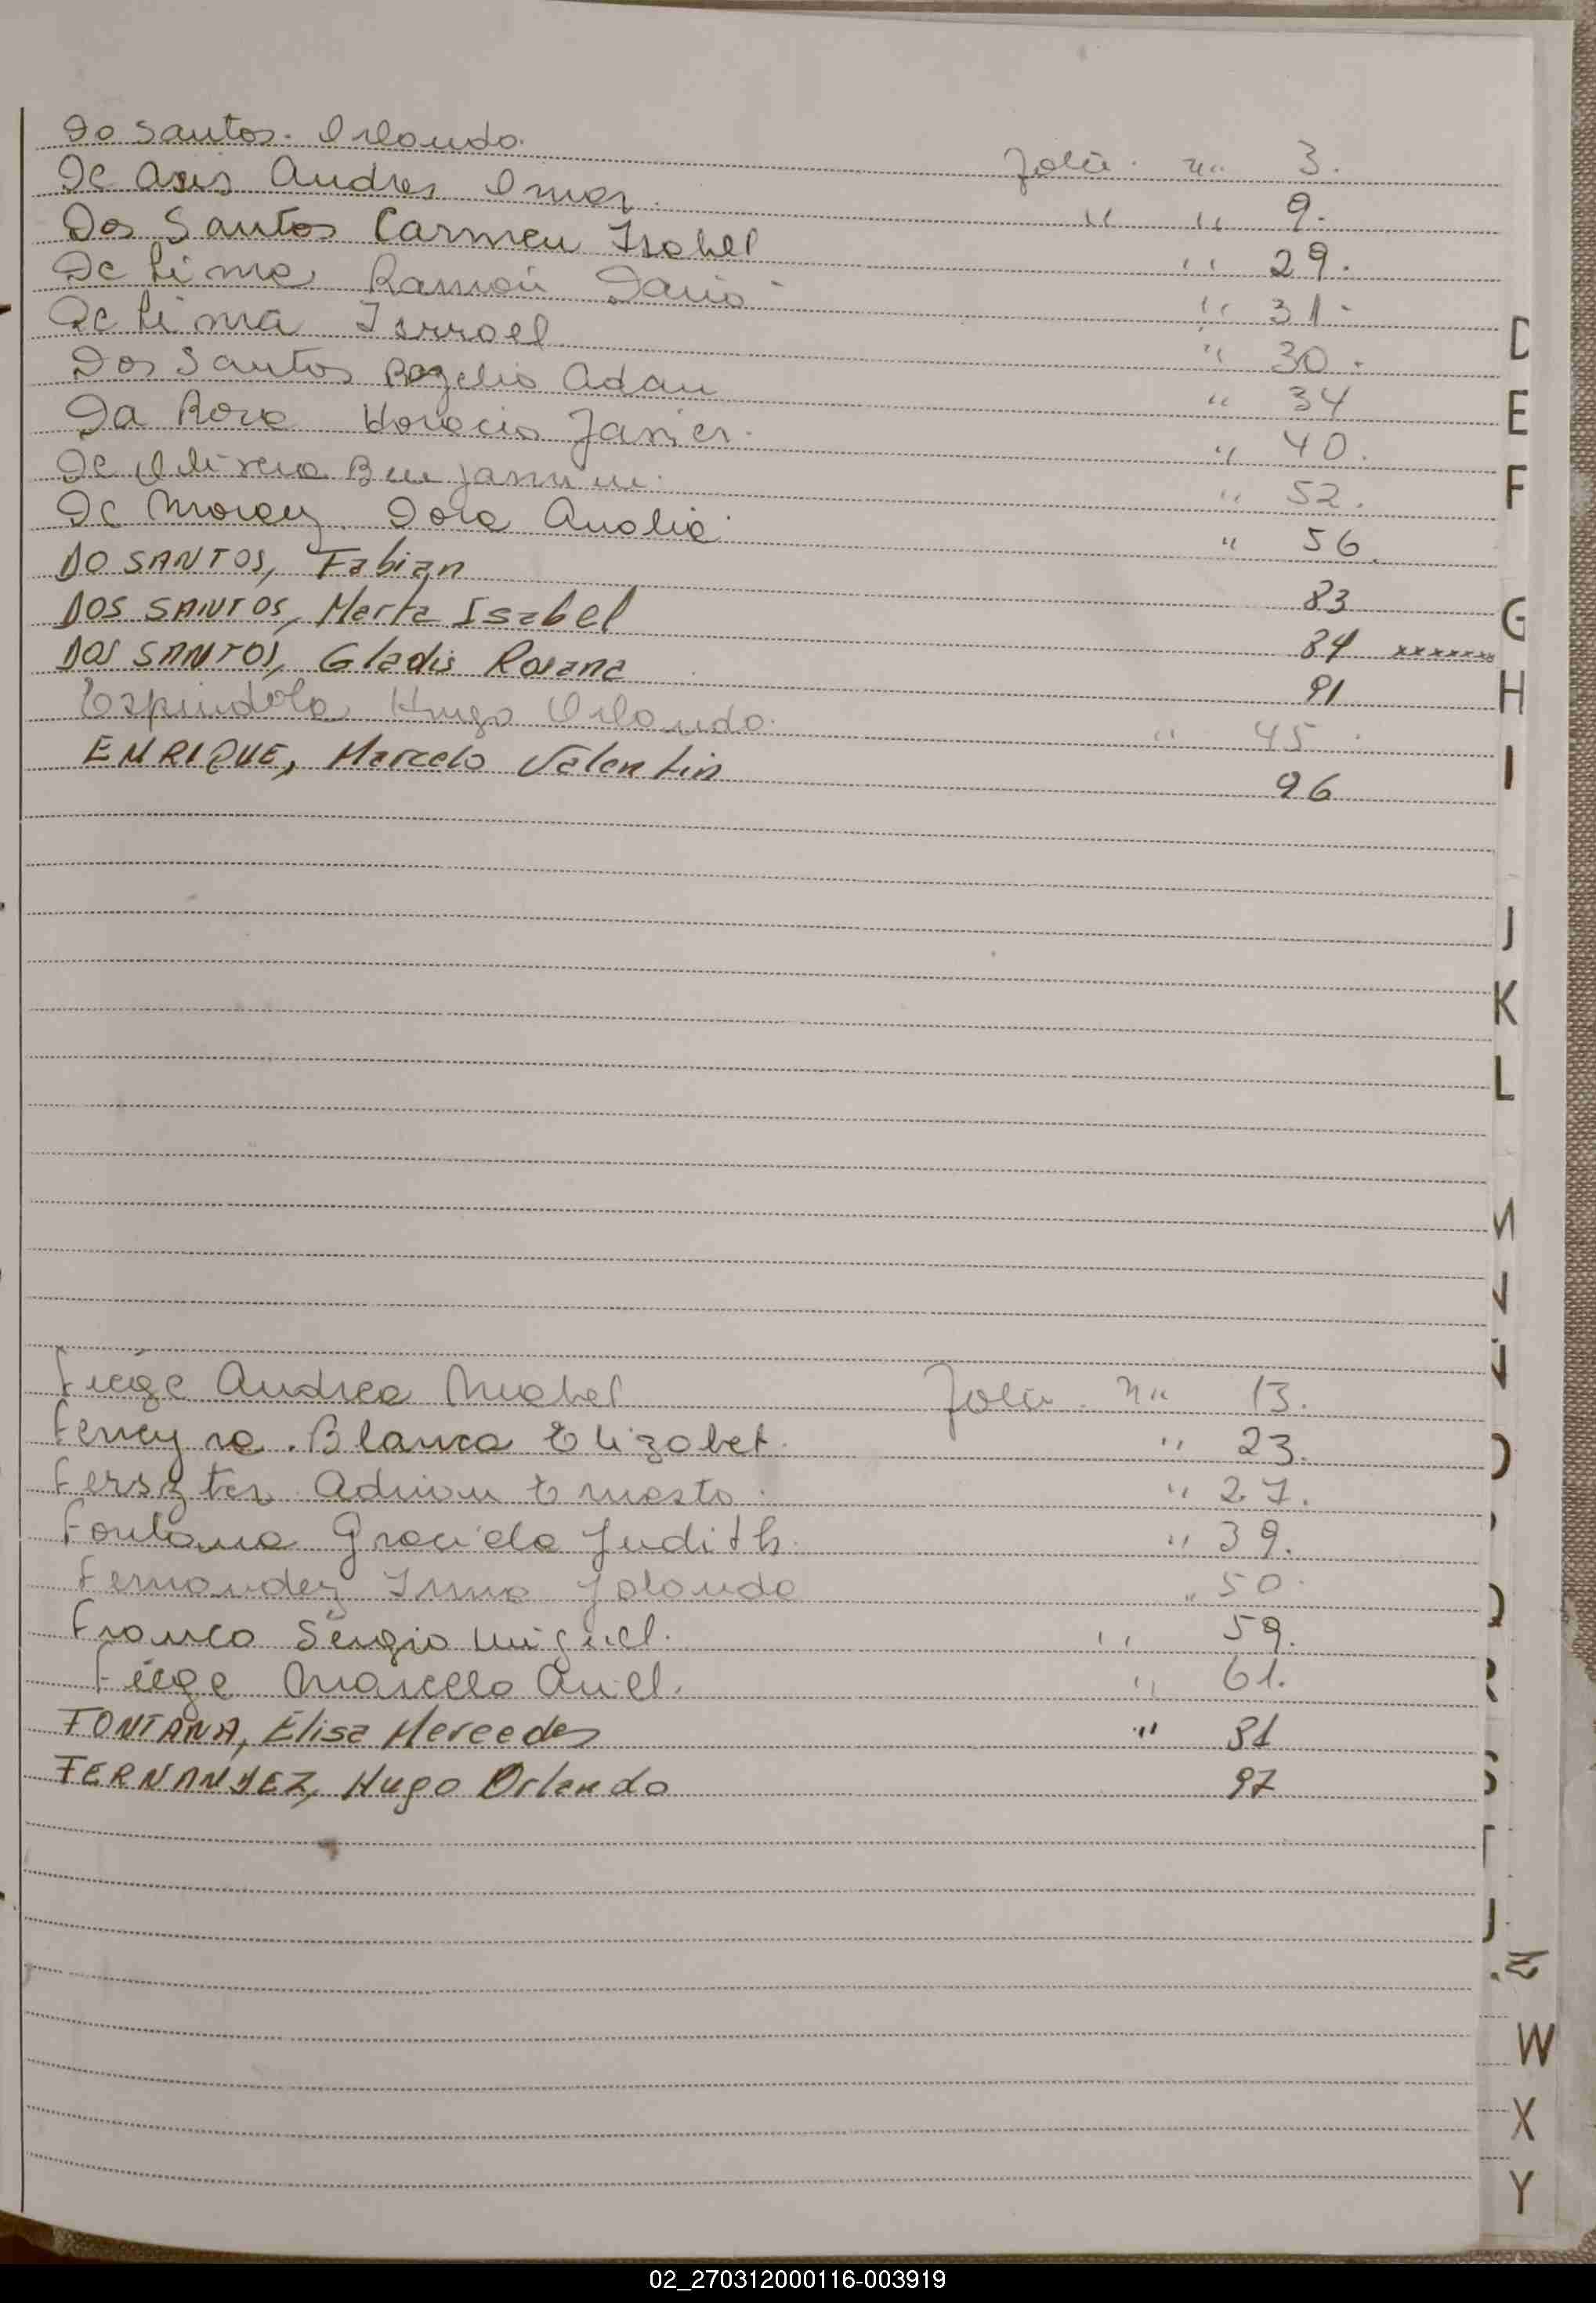 Do Santos. Orlando. Folio. nº 3.
De Asis Andres Omar. " " 9.
Dos Santos Carmen Isabel " 29.
De Lima Ramón Dario " 31-
De Lima Isrroel " 30.
Dos Santos Rogelio Adan " 34
Da Rosa Horacio Javier. " 40.
De Olivera Benjamin. " 52.
De Moraez Dora Analia. " 56.
DO SANTOS, Fabian 83
DOS SANTOS, Marta Isabel 84 xxxxxxx
DOS SANTOS, Gladis Rosana 91
Espindola Hugo Orlando. " 45.
ENRIQUE, Marcelo Valentin 96
Fiege Andrea Mabel Folio. Nº 13.
Ferreyra. Blanca Elizabet. " 23.
Adrian Ernesto. " 27.
Fontana Graciela Judith. " 39.
Fernandez Irma Jolanda " 50.
Franco Sergio Miguel. " 59.
Fiege Marcelo Ariel. " 61.
FONTANA, Elisa Mercedes " 81
FERNANDEZ, Hugo Orlando 97
D
E
F
G
H
I
J
K
L
W
X
Y
02_270312000116-003919